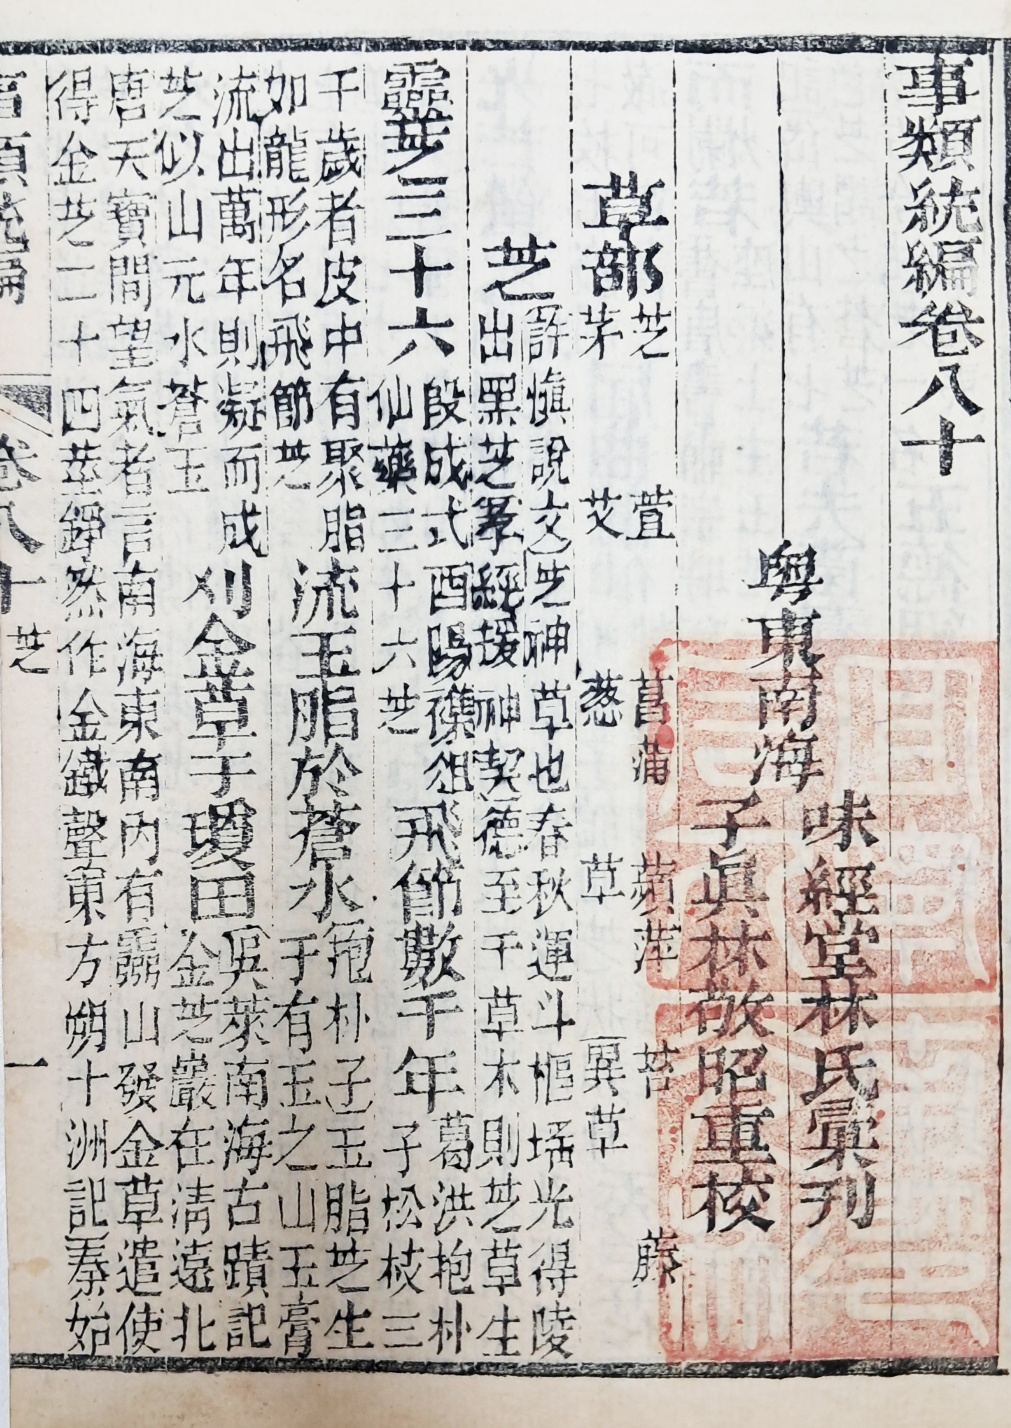 事類統編卷八十
粵東南海
味經堂林氏彙刊
子眞林敬昭重校
草部
芝 萱 菖蒲 蘋萍 苔 藤
茅 艾 蔥 草 異草
芝
許愼說文芝神草也春秋運斗樞瑤光得陵
出黑芝孝經援神契德至于草木則芝草生
靈芝三十六
段成式酉陽雜俎
仙藥三十六芝
飛節數千年
葛洪抱朴
子松枝三
千歲者皮中有聚脂
如龍形名飛節芝
流玉脂於蒼水
抱朴子玉脂芝生
于有玉之山玉膏
流出萬年則凝而成
芝似山元水蒼玉
刈金草于瓊田
吳萊南海古蹟記
金芝巖在淸遠北
唐天寶間望氣者言南海東南內有靈山發金草遣使
得金芝二十四莖錚然作金鐵聲東方朔十洲記秦始
事類統編 卷八十 芝 一